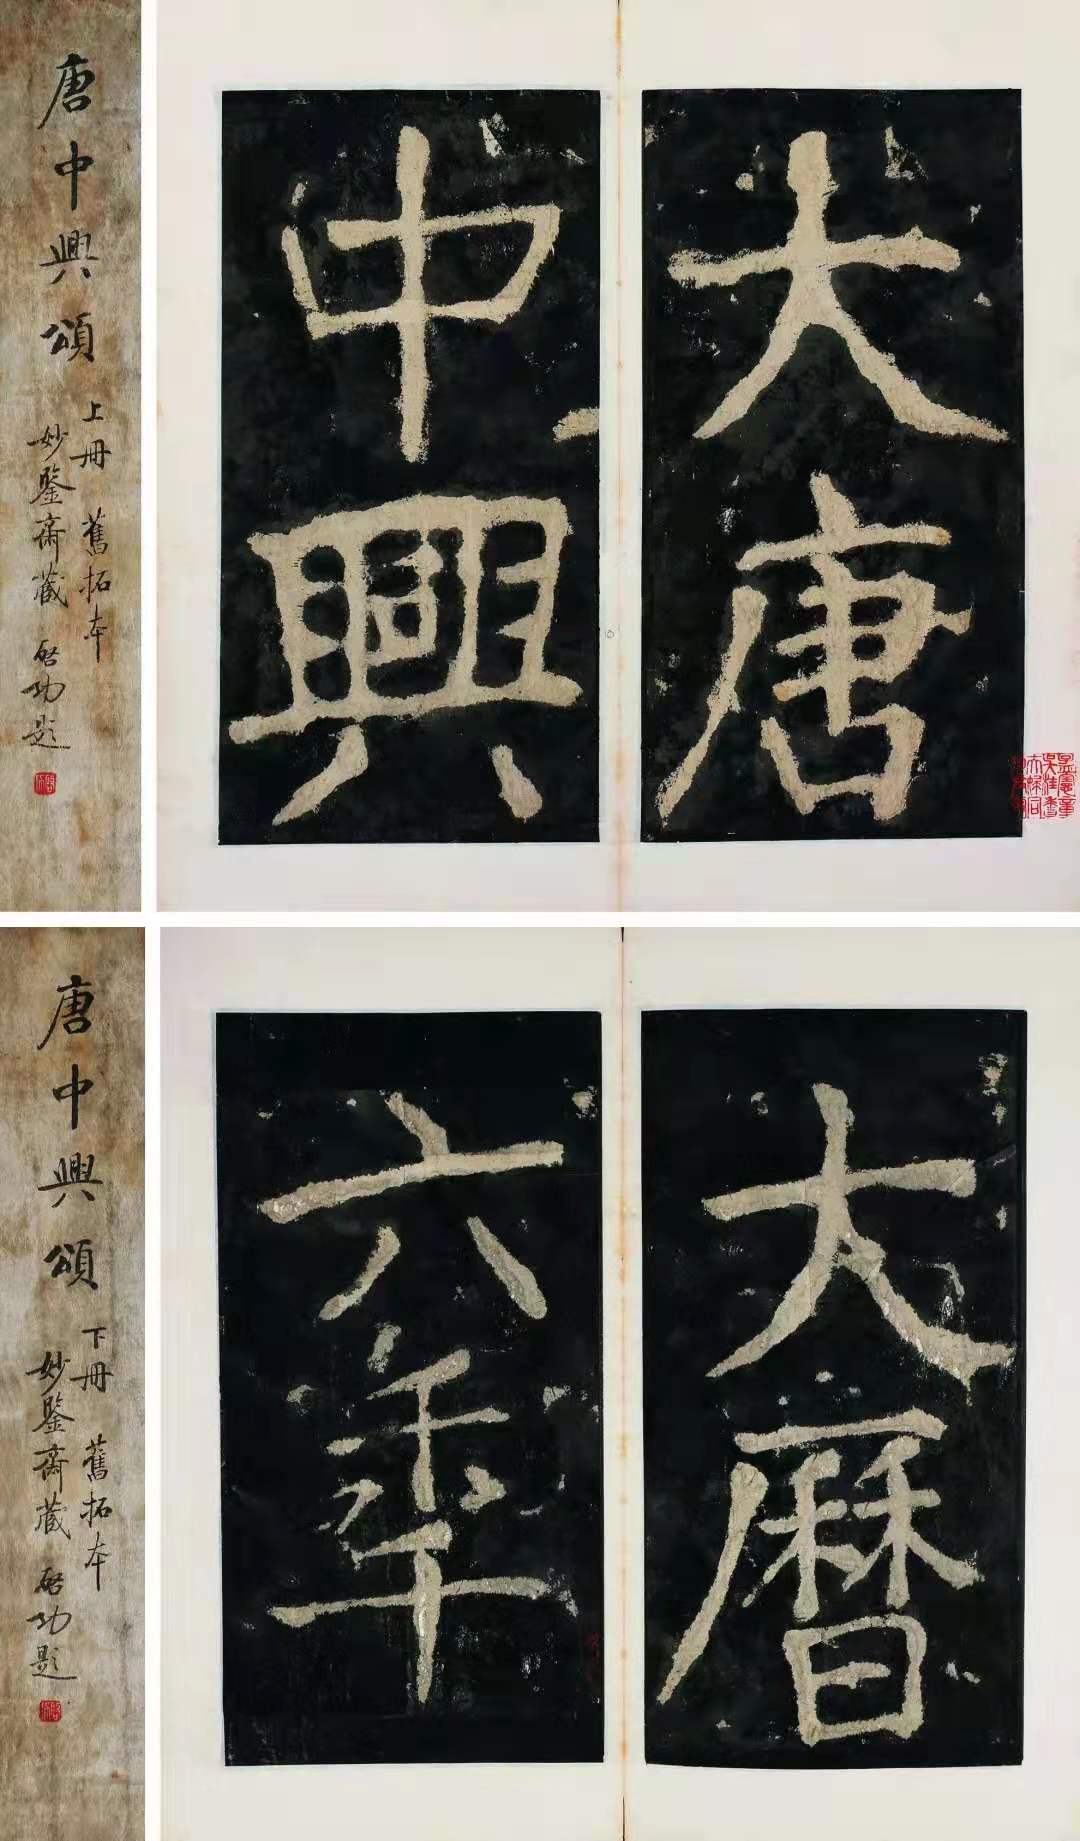 唐中興頌
上冊 舊拓本
妙鑒齋藏 啓功題
大唐
中興
唐中興頌
下冊 舊拓本
妙鑒齋藏 啓功題
大曆
六年